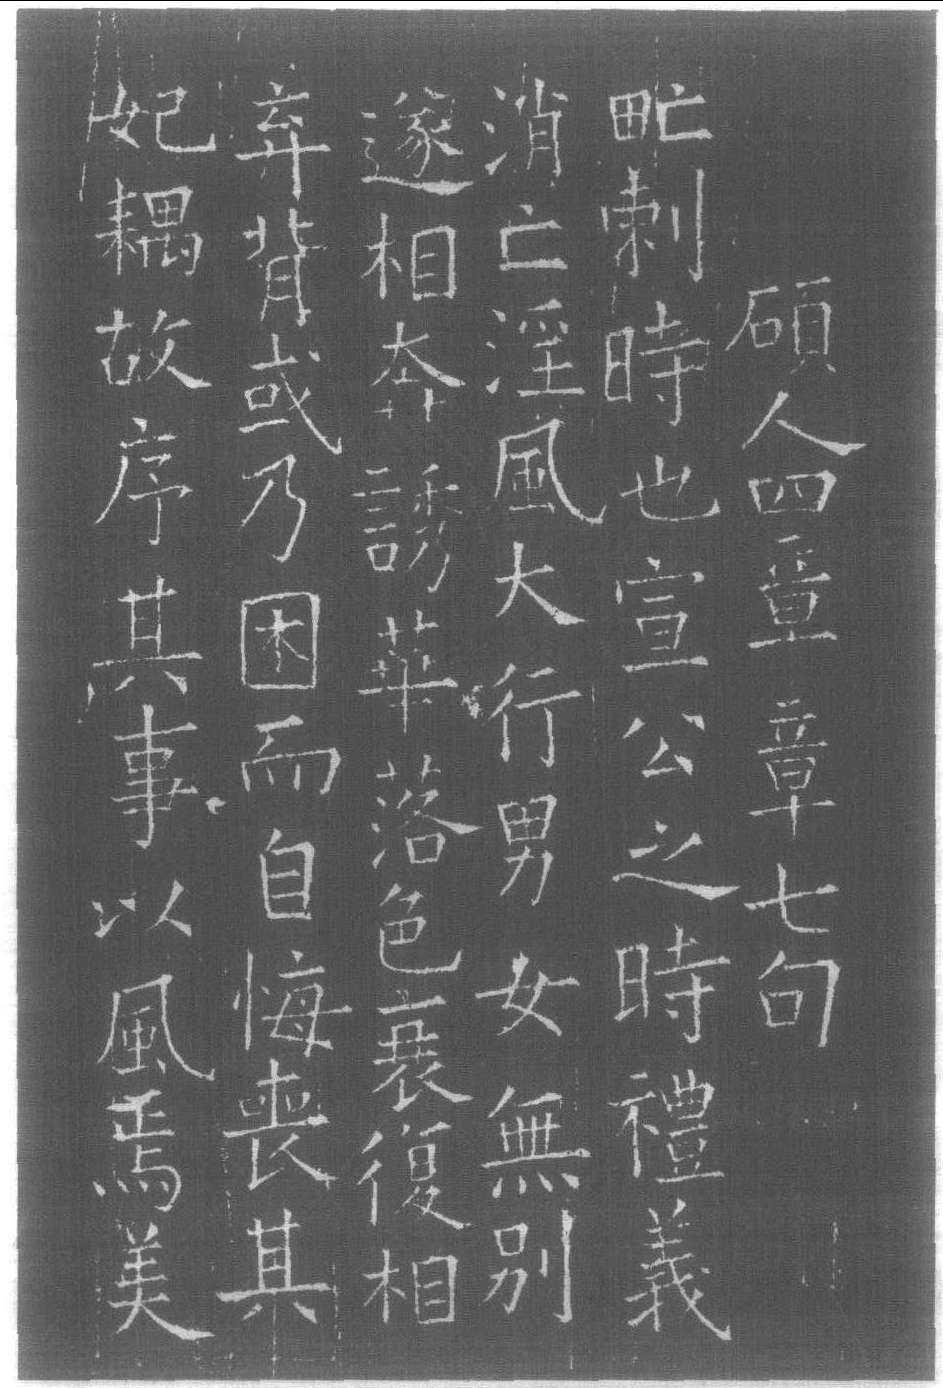 碩人四章章七句
甿刺時也宣公之時禮義
消亡淫風大行男女無別
遂相奔誘華落色衰復相
弃背或乃困而自悔喪其
妃耦故序其事以風焉美